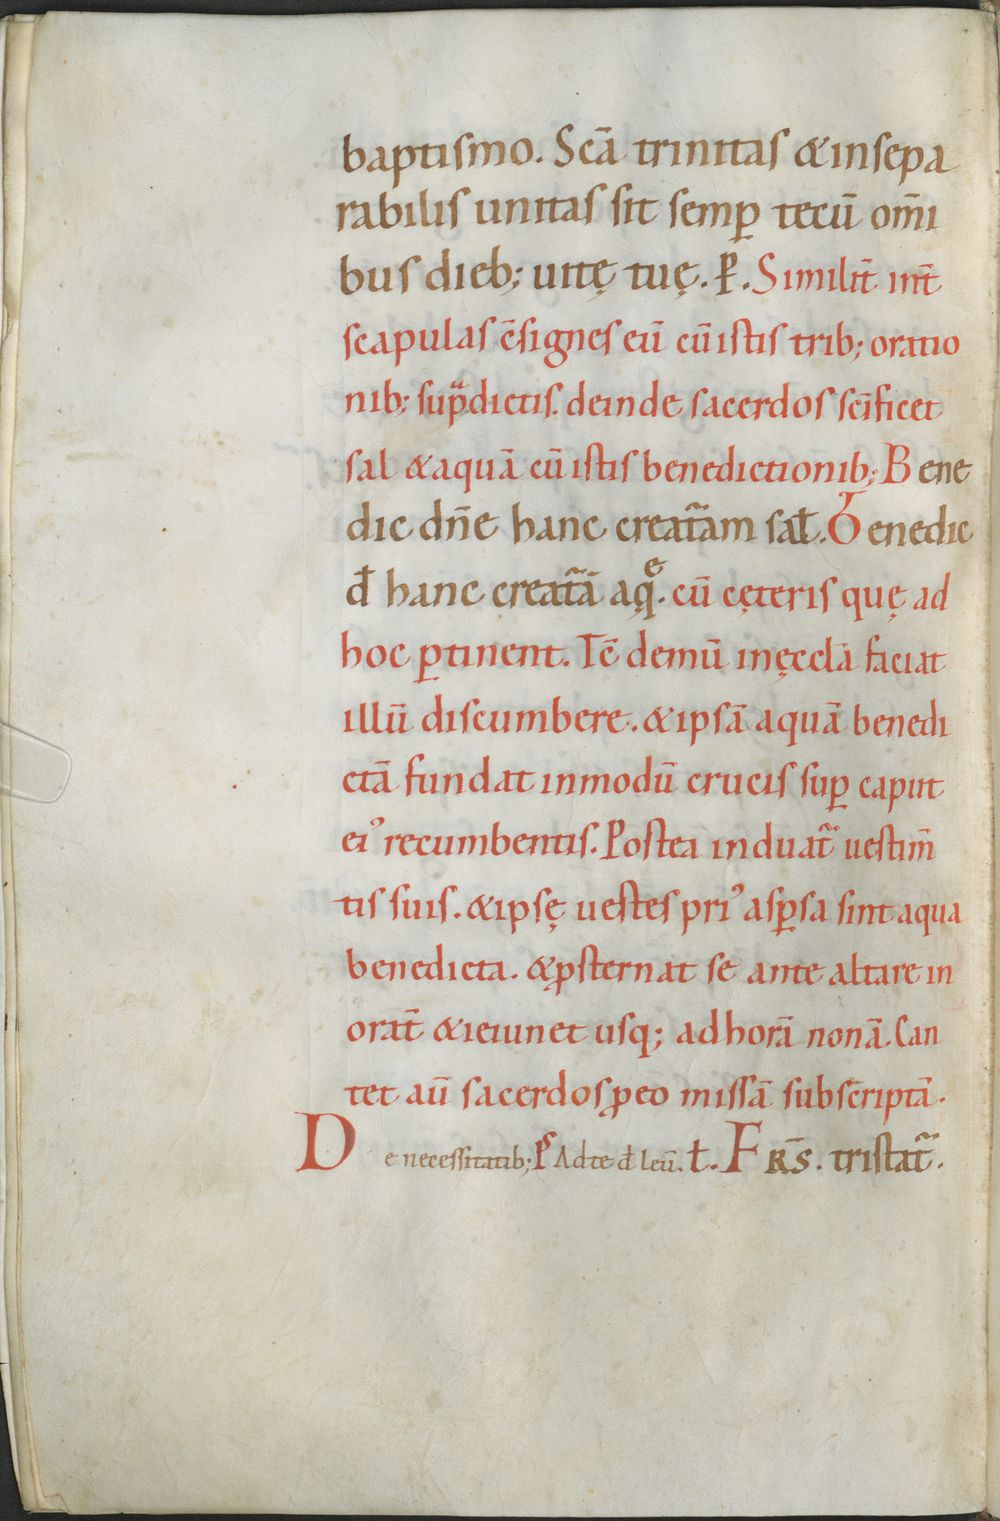 baptiſmo. Scā trinitaſ &inſepa
rabiliſ unitaſ ſit ſemꝑ tecū om̄i
buſ dieb; uitę tuę. P̶. Similit̄ int̄
ſcapulaſ c̄ſigneſ eū cū iſtiſ trib; oratio
nib; ſup̄dictiſ. deinde sacerdoſ sc̄ificet
ſal &aquā cū iſtiſ benedictionib; Bene
dic dn̄e hanc creat̄am saƚ. Benedic
đ hanc creat̄ā aq̨ͤ. cū cęteriſ quę ad
hoc ꝑtinent. Tc̄ demū inęcclā faciat
illū diſcumbere. &ipſā aquā benedi
ctā fundat inmodū cruciſ ſuꝑ caput
ei᾽ recumbentiſ. Poſtea induat̄ ueſtim̄
tiſ ſuiſ. &ipſę ueſteſ pri᾽ aſꝑſa ſint aqua
benedicta. &ꝓſternat ſe ante altare in
orat̄ &ieiunet uſq; ad horā nonā. Can
tet aū sacerdoſ ꝓeo miſſā ſubſc̄riptā.
De neceſſitatib; Pſ Adte đ leū. ƚ. FRS̄. triſtat̄.